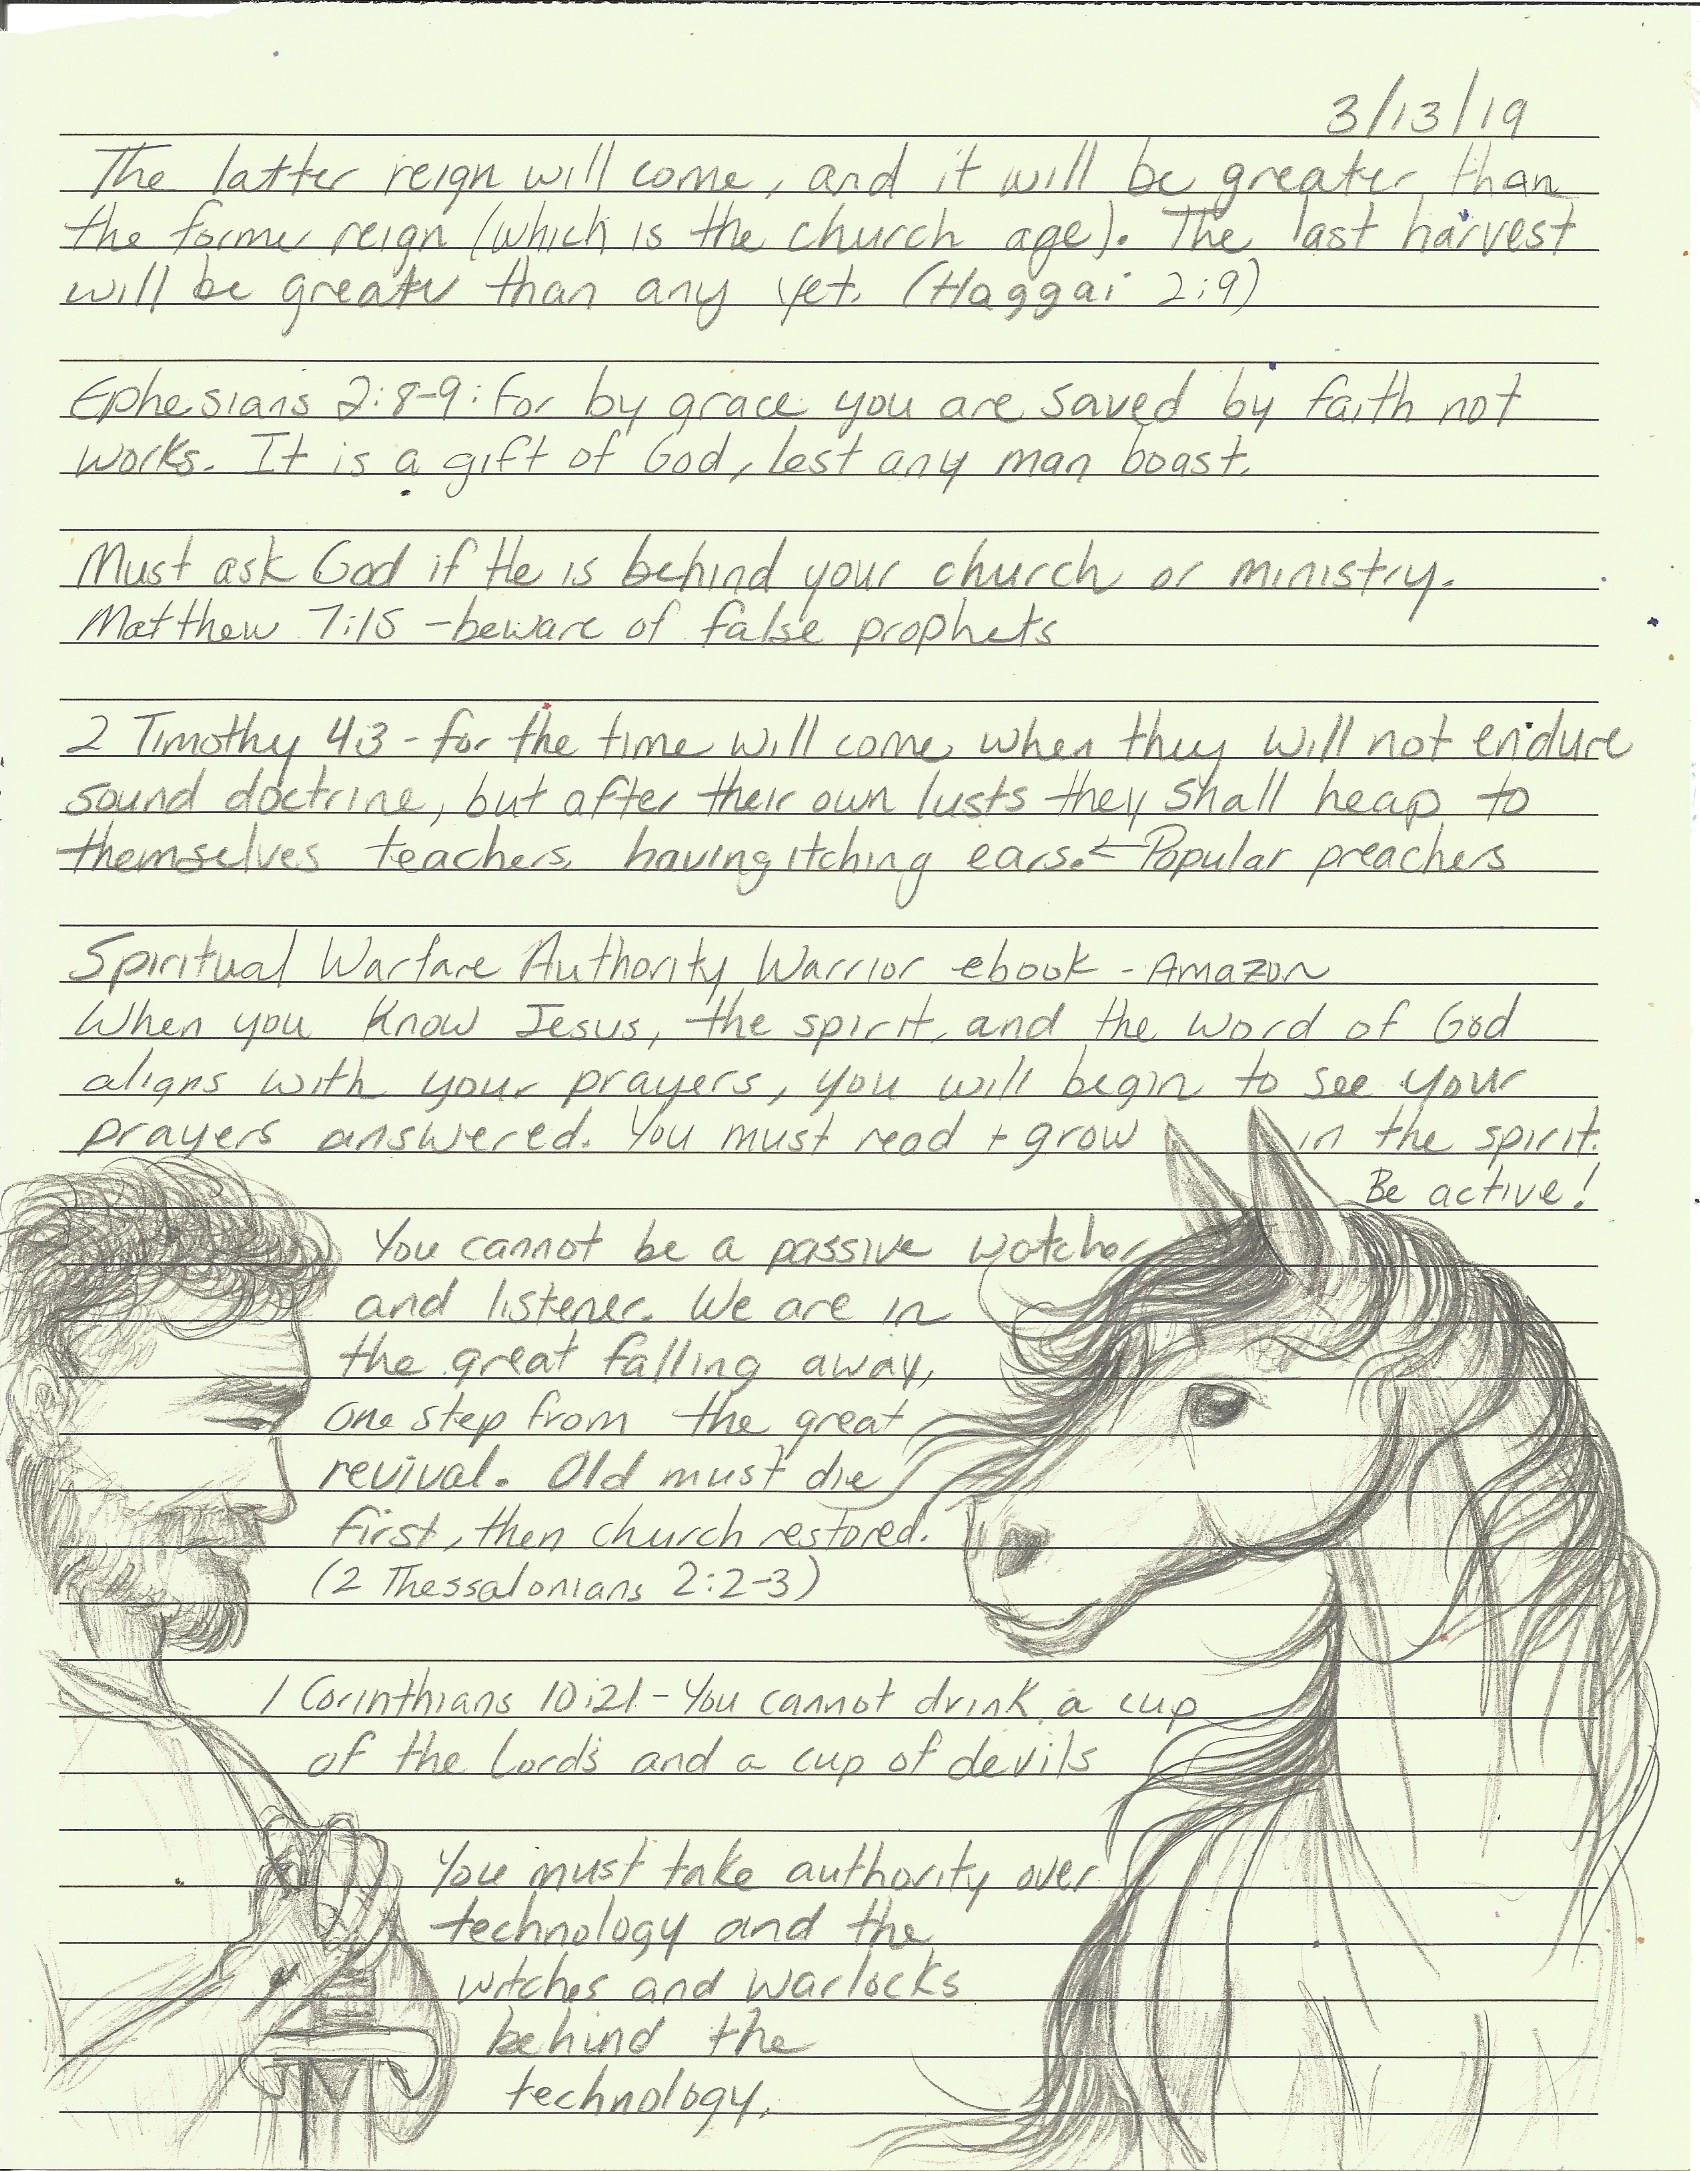 3/13/19
The latter reign will come, and it will be greater than
the former reign (which is the church age). The last harvest
will be greater than any yet. (Haggai 2:9)
Ephesians 2:8-9: For by grace you are saved by faith not
works. It is a gift of God, lest any man boast.
Must ask God if He is behind your church or ministry.
Matthew 7:15 - beware of false prophets
2 Timothy 4:3 - for the time will come when they will not endure
sound doctrine, but after their own lusts they shall heap to
themselves teachers, having itching ears. ← Popular preachers
Spiritual Warfare Authority Warrior ebook - Amazon
When you know Jesus, the spirit, and the word of God
aligns with your prayers, you will begin to see your
prayers answered. You must read + grow in the spirit.
Be active!
You cannot be a passive watcher
and listener. We are in
the great falling away,
one step from the great
revival. Old must die
first, then church restored.
(2 Thessalonians 2:2-3)
1 Corinthians 10:21 - You cannot drink a cup
of the Lord's and a cup of devils
You must take authority over
technology and the
witches and warlocks
behind the
technology.